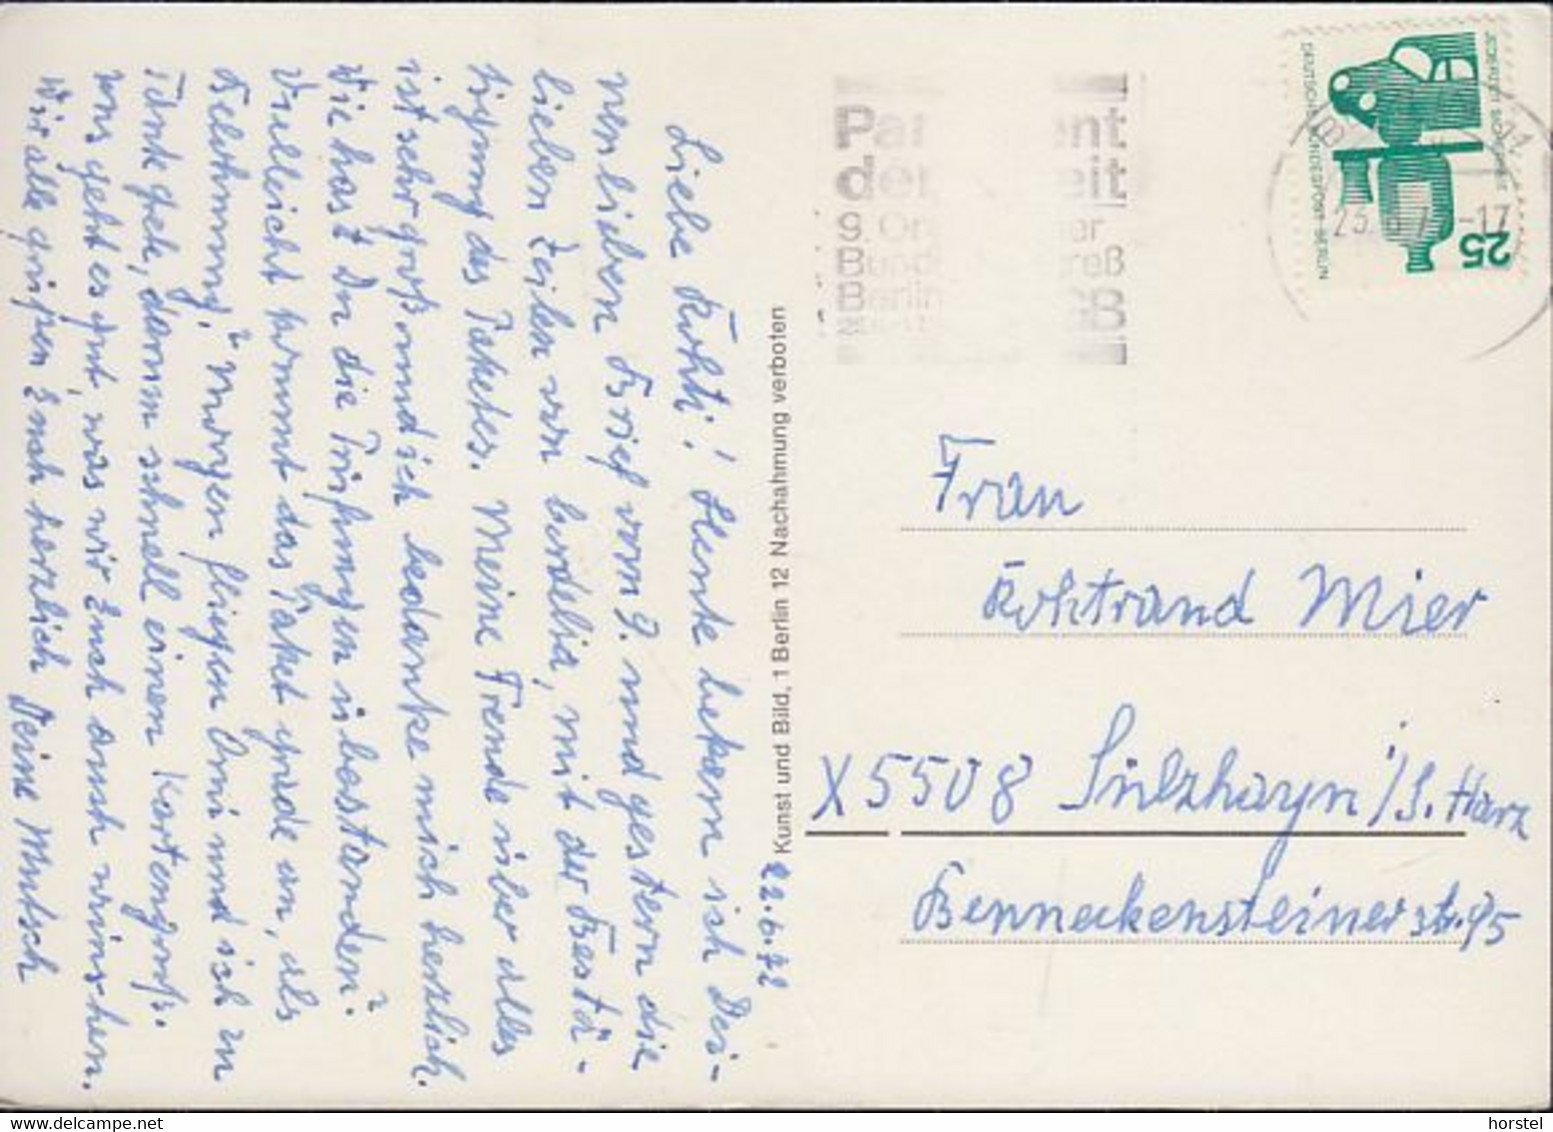 22.6.72
Liebe Ruhti! Heute bekam ich Dei-
nen lieben Brief vom 9. und gestern die
lieben Zeilen von Cordelia, mit der Bestä-
tigung des Paketes. Meine Freude über alles
ist sehr groß und ich bedanke mich herzlich.
Wie hast Du die Prüfungen überstanden?
Vielleicht kommt das Paket grade an, als
Belohnung? Morgen fliegen Omi und ich zu
geh, darum schnell einen Kartengruß.
Uns geht es gut, was wir Euch auch wünschen.
Wir alle grüßen Euch herzlich Deine Mutsch
Kunst und Bild, 1 Berlin 12 Nachahmung verboten
9.
Berlin
DEUTSCHE BUNDESPOST BERLIN
25
-17
Frau
Ruhtraud Mier
X5508 Sülzhayn i/S. Harz
Benneckensteinerstr. 95
horstel